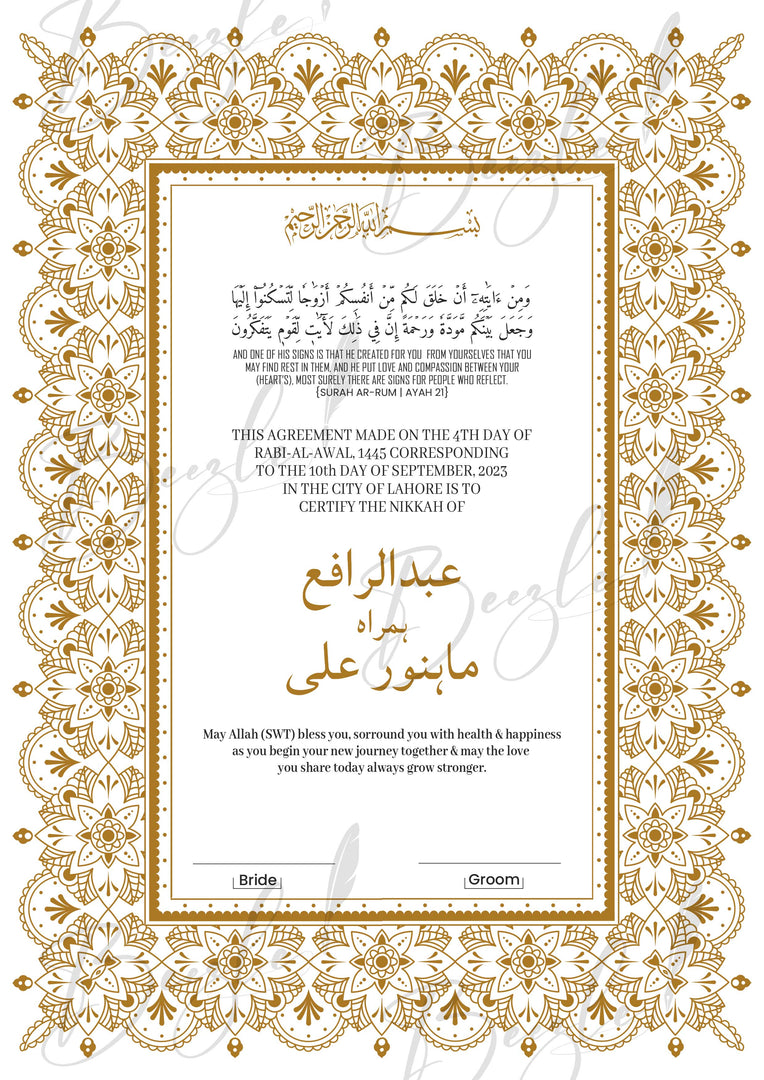 بسم الله الرحمن الرحيم
وَمِنْ ءَايَٰتِهِۦٓ أَنْ خَلَقَ لَكُم مِّنْ أَنفُسِكُمْ أَزْوَٰجًا لِّتَسْكُنُوٓا۟ إِلَيْهَا
وَجَعَلَ بَيْنَكُم مَّوَدَّةً وَرَحْمَةً إِنَّ فِي ذَٰلِكَ لَءَايَٰتٍ لِّقَوْمٍ يَتَفَكَّرُونَ
AND ONE OF HIS SIGNS IS THAT HE CREATED FOR YOU FROM YOURSELVES THAT YOU
MAY FIND REST IN THEM, AND HE PUT LOVE AND COMPASSION BETWEEN YOUR
(HEART'S), MOST SURELY THERE ARE SIGNS FOR PEOPLE WHO REFLECT.
{SURAH AR-RUM | AYAH 21}
THIS AGREEMENT MADE ON THE 4TH DAY OF
RABI-AL-AWAL, 1445 CORRESPONDING
TO THE 10th DAY OF SEPTEMBER, 2023
IN THE CITY OF LAHORE IS TO
CERTIFY THE NIKKAH OF
عبدالرافع
ہمراہ
ماہنور علی
May Allah (SWT) bless you, sorround you with health & happiness
as you begin your new journey together & may the love
you share today always grow stronger.
Bride
Groom
Beezle